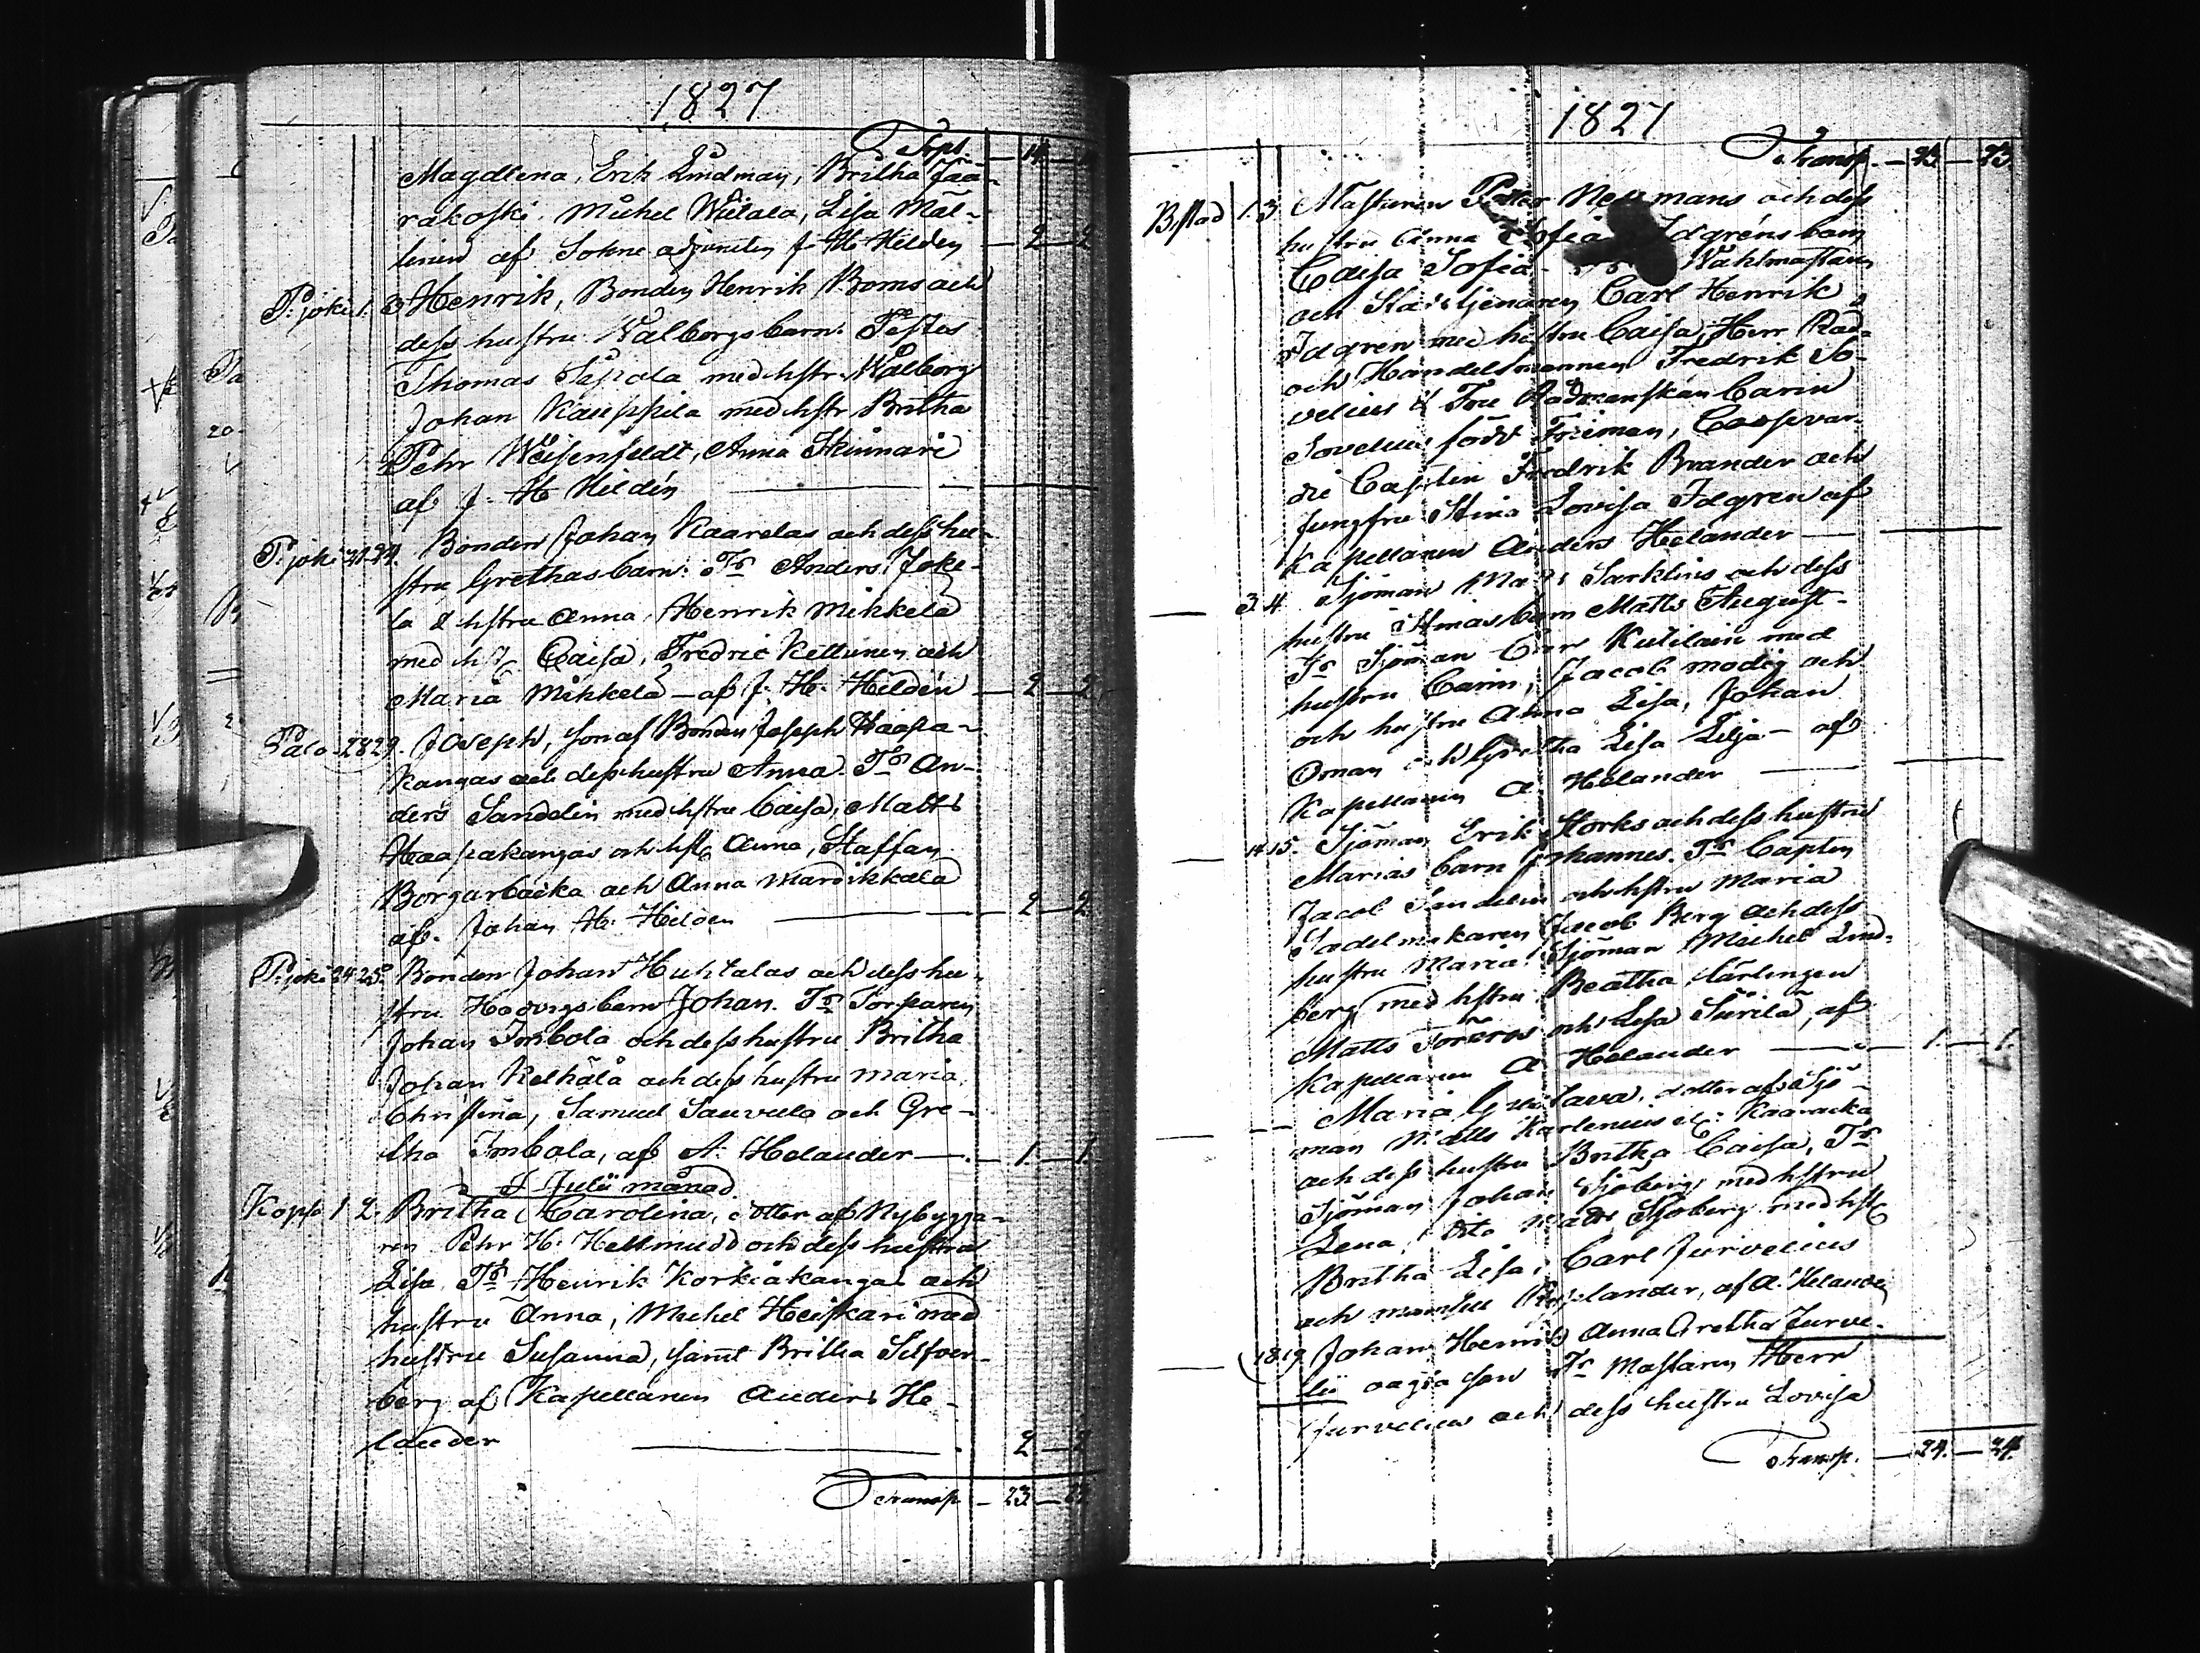 1827
Trsp. 14
Magdlena, Erik Lindman, Britha Jaa-
rakoski. Michel Wiitala, Lisa Mal-
linen af Sokne adjuncten J. H. Hildén 2 2
P:joki 1. 3 Henrik, Bonden Henrik Boms och
dess hustru Walborgs barn. Testes
Thomas Seppala med hstr: Walborg
Johan Kauppila med hstr Britha
Pehr Weisenfeldt, Anna Skinnari
af J. H. Hildén
P:joki 21. 24. Bonden Johan Kaarelas och dess hu-
stru Grethas barn: Ts Anders Joke-
la & hstru Anna, Henrik Mikkela
med hst Caisa, Fredric Kettunen och
Maria Mikkela - af J. H. Hildén 2 2
Palo 28 29. Joseph, son af Bonden Joseph Haapa-
kangas och dess hustru Anna. Ts An-
ders Sandelin med hstru Caisa, Matts
Haapakangas och hst Anna, Staffan
Borgarbacka och Anna Mardikkala
af. Johan H. Hildén 2 2
P:joki 24 25. Bonden Johan Huhtalas och dess hu-
stru Hedvigs barn Johan. Ts Torparen
Johan Imbola och dess hustru Britha
Johan Kelhälä och dess hustru Maria
Christina, Samuel Sauvula och Gre-
tha Imbola, af A. Helander 1 1
I Julii månad.
Kopsa 1 2. Britha Carolina, dotter af Nybygga-
ren Pehr H. Hellmudd och dess hustru
Lisa. Ts Henrik Korkiakangas och
hustru Anna, Michel Heiskari med
hustru Susanna, samt Britha Silfver-
berg af Kapellanen Anders He-
lander 2 2
Transp. 23 23
1827
Transp. 23 23
B.stad 1. 3 Masturen Petter Neumans och dess
hustru Anna Sofia Idgréns barn
Caisa Sofia. Wåhtmastaren
och Stadstjenaren Carl Henrik
Idgren med hustru Caisa, Herr Råd-
och Handelsmannen Fredrik So-
velius & Fru Rådmanskan Carin
Sovelius född Friman, Coopvar-
die Capten Fredrik Brander och
Jungfru Stina Lovisa Idgren af
Kapellanen Anders Helander
3. 4. Sjöman Matts Sarklins och dess
hustru Stinas barn Matts August-
Ts Sjöman Kutilain med
hustru Carin, Jacob Modig och
och hustru Anna Lisa, Johan
Öman och Gretha Lisa Lilja - af
Kapellanen A Helander
14 15. Sjöman Erik Storks och dess hustru
Marias barn Johannes. Ts Capten
Jacob Sandelin och hstru Maria
Sadelmakaren Jacob Berg och dess
hustru Maria. Sjöman Michel Lind-
berg med hstru Beatha, lärlingen
Matts Toreros och Lisa Siirilä, af
Kapellanen A Helander 1 1
Maria Gustava, dotter af Sjö-
man Matts Karlenius Kaaracka
och dess hustru Britha Caisa, Ts
Sjöman Johan Sjöberg med hstru
Lena, dito Matts Sjöberg med hst
Britha Lisa, Carl Jurvelius
och mamsell lander, af A. Helander
18 19 Johan Henrik Anna Gretha Jurve-
lii oagta son Ts Mastaren Herr
Jurvelius och dess hustru Lovisa
Transp. 24. 24.